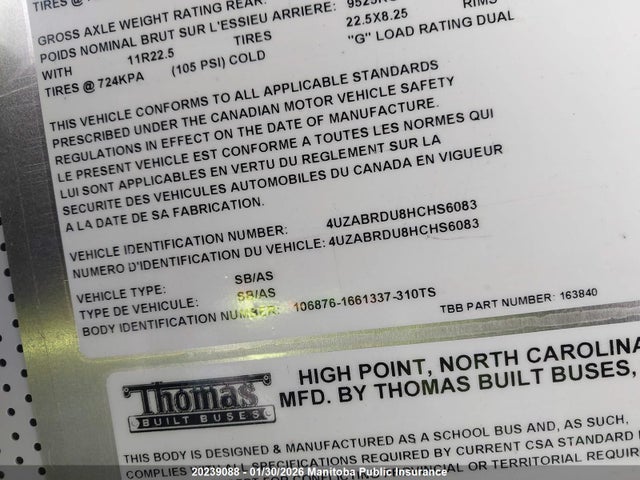 TIRES @
GROSS AXLE WEIGHT RATING REAR:
POIDS NOMINAL BRUT SUR L'ESSIEU ARRIERE: RIMS
WITH 11R22.5 TIRES 22.5X8.25
TIRES @ 724KPA (105 PSI) COLD "G" LOAD RATING DUAL
THIS VEHICLE CONFORMS TO ALL APPLICABLE STANDARDS
PRESCRIBED UNDER THE CANADIAN MOTOR VEHICLE SAFETY
REGULATIONS IN EFFECT ON THE DATE OF MANUFACTURE.
LE PRESENT VEHICLE EST CONFORME A TOUTES LES NORMES QUI
LUI SONT APPLICABLES EN VERTU DU REGLEMENT SUR LA
SECURITE DES VEHICULES AUTOMOBILES DU CANADA EN VIGUEUR
A LA DATE DE SA FABRICATION.
VEHICLE IDENTIFICATION NUMBER: 4UZABRDU8HCHS6083
NUMERO D'IDENTIFICATION DU VEHICULE: 4UZABRDU8HCHS6083
VEHICLE TYPE: SB/AS
TYPE DE VEHICULE: SB/AS
BODY IDENTIFICATION NUMBER: 106876-1661337-310TS TBB PART NUMBER: 163840
HIGH POINT, NORTH CAROLINA
Thomas MFD. BY THOMAS BUILT BUSES,
BUILT BUSES
THIS BODY IS DESIGNED & MANUFACTURED AS A SCHOOL BUS AND, AS SUCH,
COMPLIES ALL SPECIFICATIONS REQUIRED BY CURRENT CSA STANDARD
OR TERRITORIAL
20239088 - 01/30/2026 - Manitoba Public Insurance